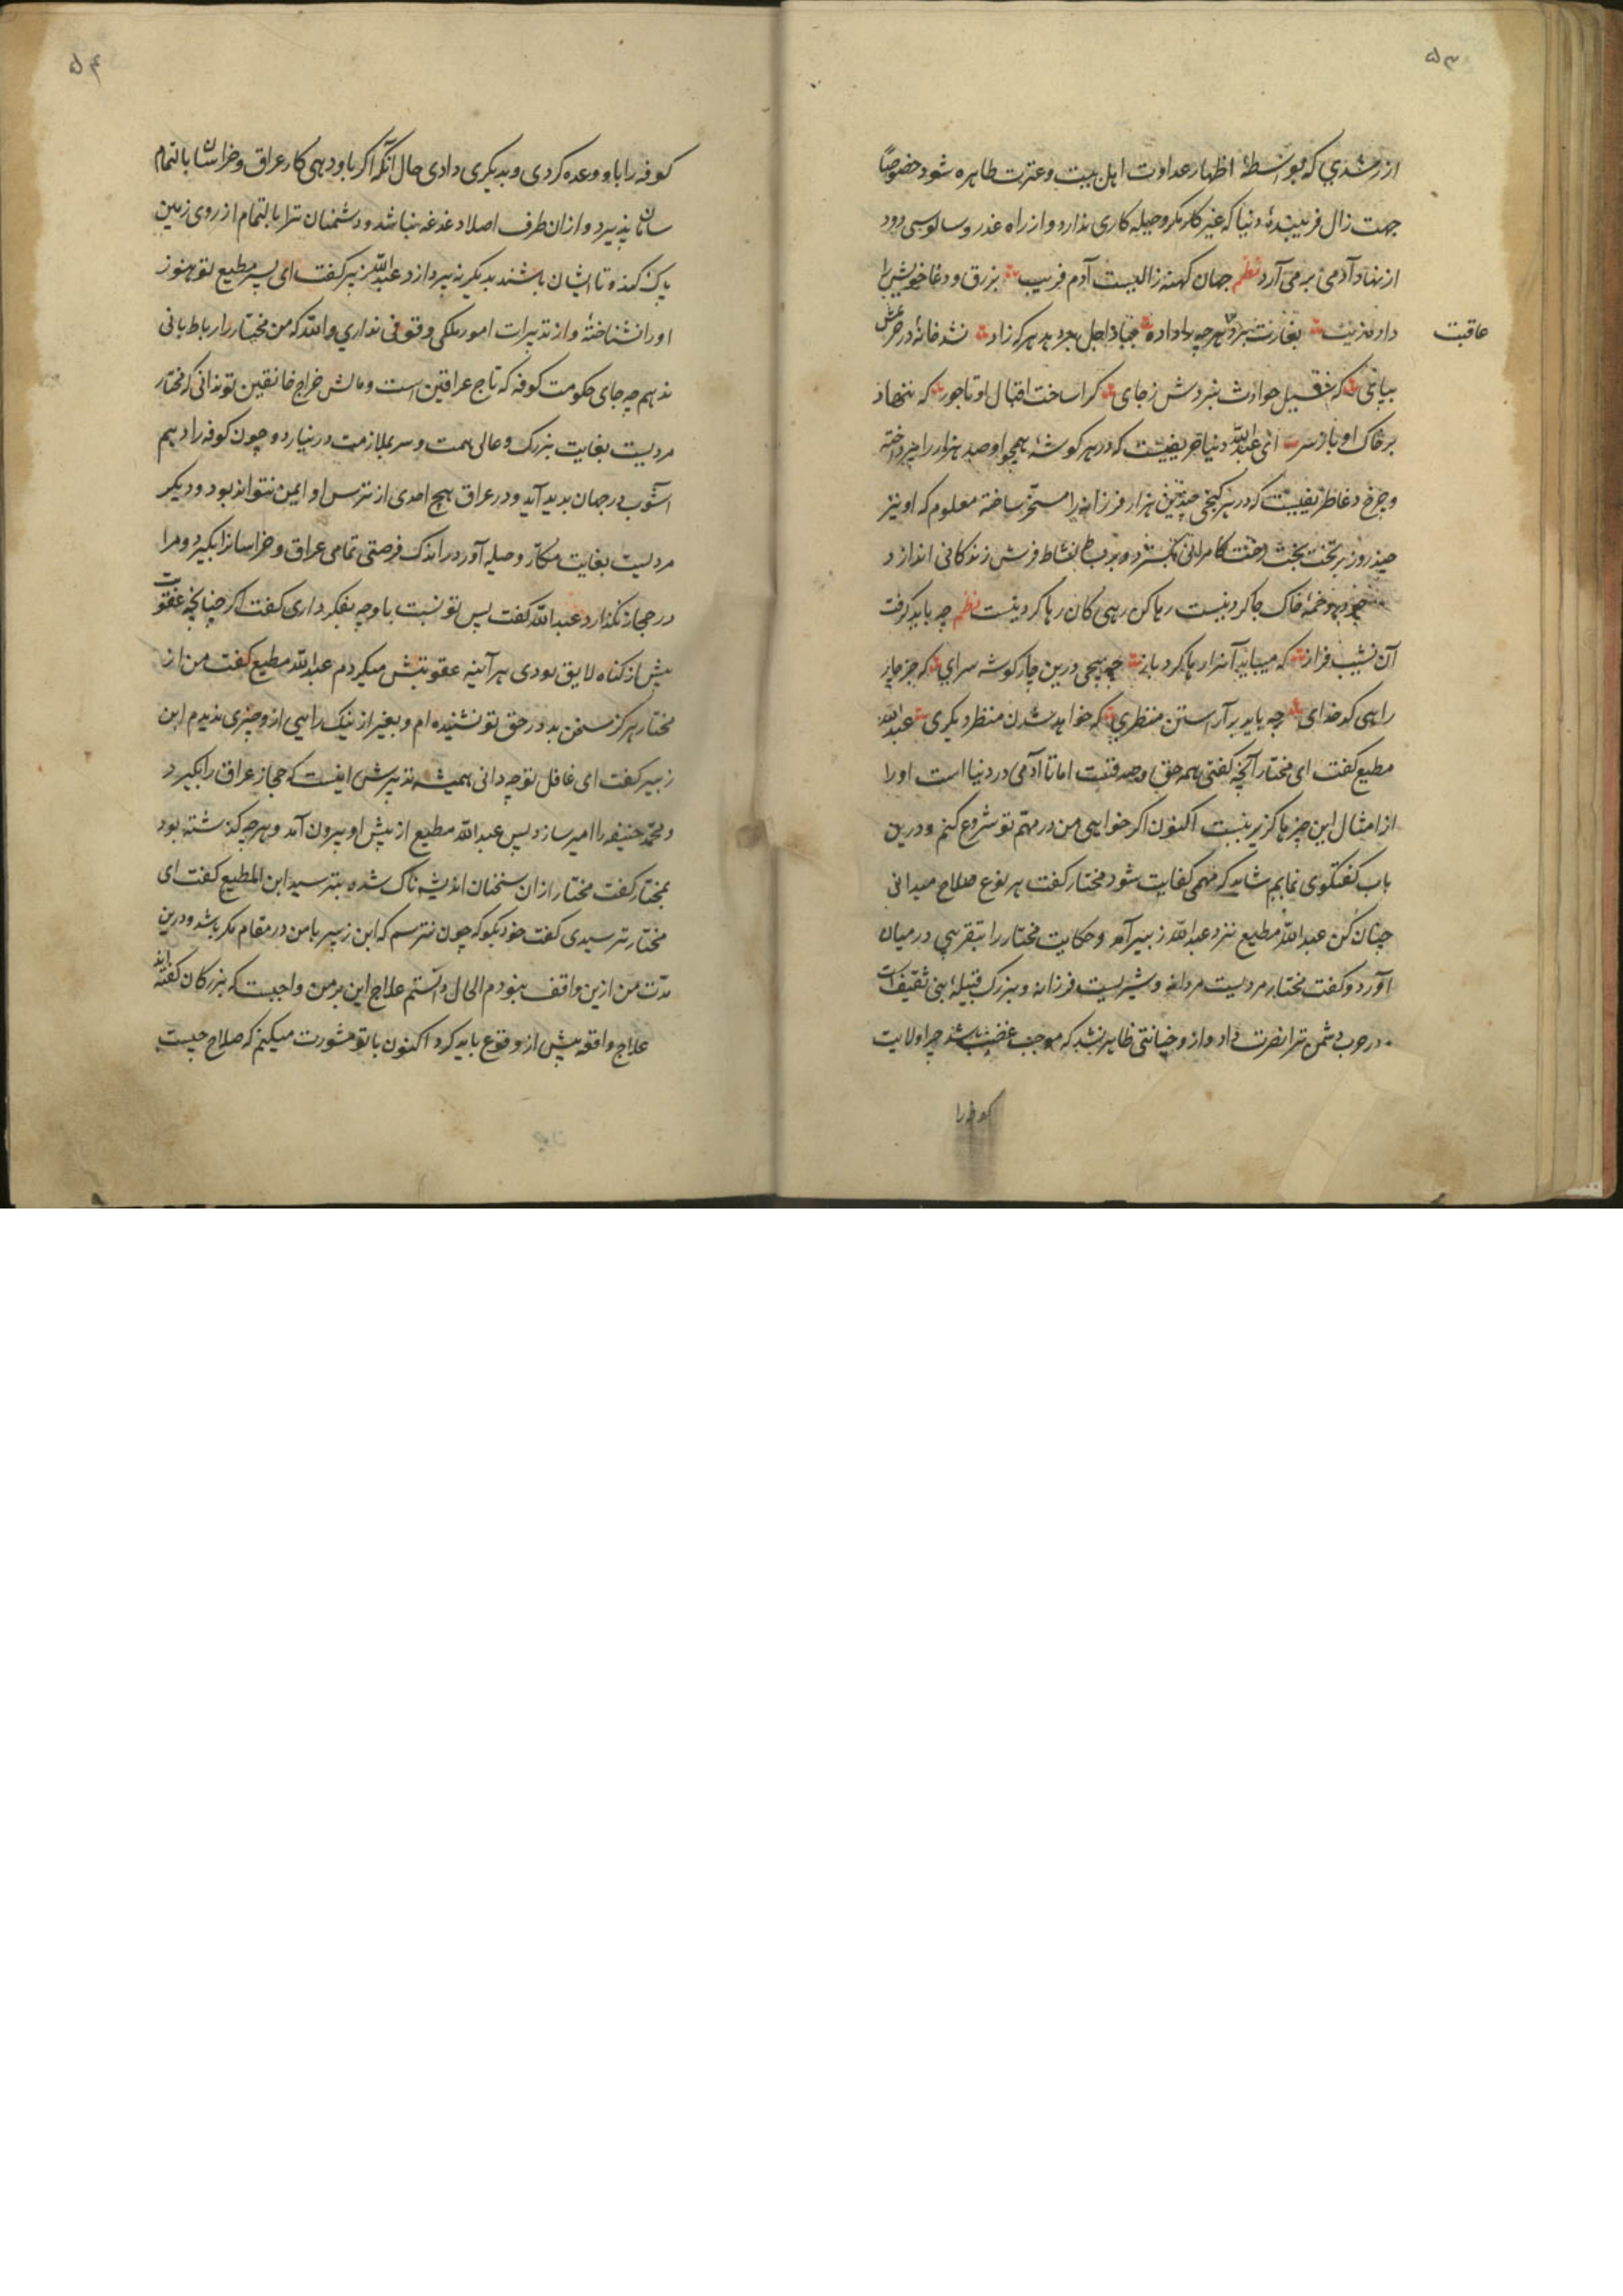 ۵۳
از رشدی که بواسطهٔ اظهار عداوت اهل بیت و عترت طاهره شود خصوصاً
جهت زال فریبندهٔ دنیا که غیر کار مکر و حیله کاری ندارد و از راه غدر و سالوسی دود
از نهاد آدمی برمی آرد نظم جهان کهنه زالیست آدم فریب بزرق و دغا خویش را
داد زیب بغارت برد هرچه را داده بباد اجل بر دهد هرکه زاد نشد خانهٔ در حرمش
عاقبت
بپای که سیل حوادث نبردش ز جای کرا ساخت اقبال او تاجور که ننهاد
بر خاک او باز سر ای عبدالله دنیا حریفیست که در هر کوشهٔ همچو او صد هزار را
و چرخ دغا ظریفیست که در هر کنجی چندین هزار فرزانه را مسخر ساخته معلوم که او نیز
چند روز بر تخت بخت رخت کامرانی کسترده و بر بساط نشاط فرش زندکانی اندازد
خود دخمهٔ خاک جا کردنیست رها کن رهی کان رها کردنیست نظم چه باید کرفت
آن نشیب فراز که میباید آنرا رها کرد باز چه پیچی درین چار کوشه سرای که جز چار
راهی کد خدای چه باید بر آراستن منظری که خواهد شدن منظر دیکری عبدالله
مطیع کفت ای مختار آنچه کفتی همه حق و صدقست اما تا آدمی در دنیا است او را
از امثال این چیزها کزیر نیست اکنون اکر خواهی من در مهم تو شروع کنم و درین
باب کفتکوی نمایم شاید که مهمی کفایت شود مختار کفت هر نوع صلاح میدانی
چنان کن عبدالله مطیع نزد عبدالله زبیر آمد و حکایت مختار را بتقریبی در میان
آورد و کفت مختار مردیست مردانه و شیریست فرزانه و بزرک قبیلهٔ بنی ثقیفست
در حرب دشمن ترا نصرت داد و از و خیانتی ظاهر نشد که موجب غضب باشد چرا ولایت
کوفه را
۵۴
کوفه را باو وعده کردی و بدیکری دادی حال آنکه اکر باو دهی کار عراق و خراسان بالتمام
سامان پذیرد و از ان طرف اصلا دغدغه نباشد و دشمنان ترا بالتمام از روی زمین
پاک کند و تا ایشان باشند بدیکری نپردازد عبدالله زبیر کفت ای پسر مطیع تو هنوز
او را نشناختهٔ و از تدبیرات امور ملکی وقوفی نداری والله که من مختار را رباط بانی
ندهم چه جای حکومت کوفه که تاج عراقین است و مالش خراج خافقین تو ندانی که مختار
مردیست بغایت بزرک و عالی همت و سر بملازمت درنیارد و چون کوفه را دهیم
آشوب در جهان پدید آید و در عراق هیچ احدی از ترس او ایمن نتواند بود و دیکر
مردیست بغایت مکار و حیله آور در اندک فرصتی تمامی عراق و خراسانرا بکیرد و مرا
در حجاز نکذارد عبدالله کفت پس تو نسبت باو چه بفکر داری کفت اکر چنانچه عقوبت
پیش از کناه لایق بودی هر آینه عقوبتش میکردم عبدالله مطیع کفت من از
مختار هرکز سخن بد در حق تو نشنیده ام و بغیر از نیک رایی از و چیزی ندیدم ابن
زبیر کفت ای غافل تو چه دانی همیشه تدبیرش اینست که حجاز عراق را بکیرد
و محمد حنیفه را امیر سازد پس عبدالله مطیع از پیش او بیرون آمد و هرچه کذشته بود
بمختار کفت مختار از ان سخنان اندیشه ناک شده بترسید ابن المطیع کفت ای
مختار ترسیدی کفت خود بکو که چون نترسم که ابن زبیر با من در مقام مکر باشد و درین
مدت من ازین واقف نبودم الحال دانستم علاج این بر من واجبست که بزرکان کفته اند
علاج واقعه پیش از وقوع باید کرد اکنون با تو مشورت میکنم که صلاح چیست